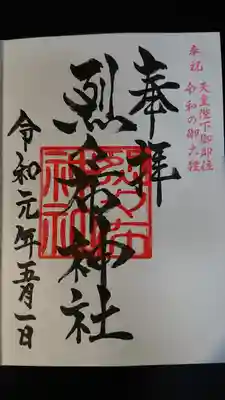 奉祝 天皇陛下御即位
令和の御大禮
奉拝
烈々布神社
令和元年五月一日